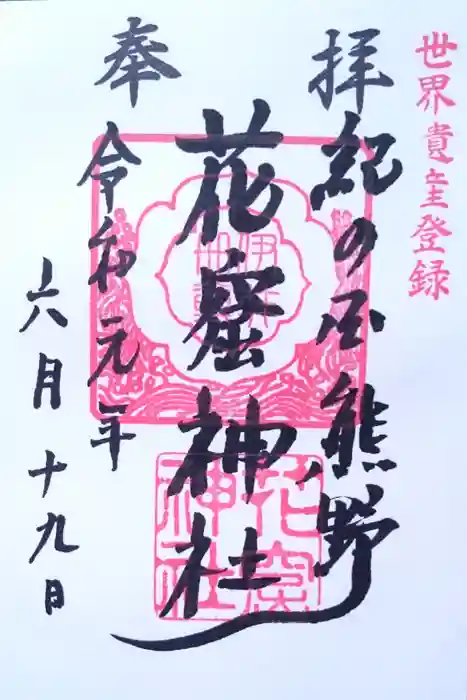 世界遺産登録
奉拝
紀の国熊野
花窟神社
令和元年
六月十九日
花窟
神社